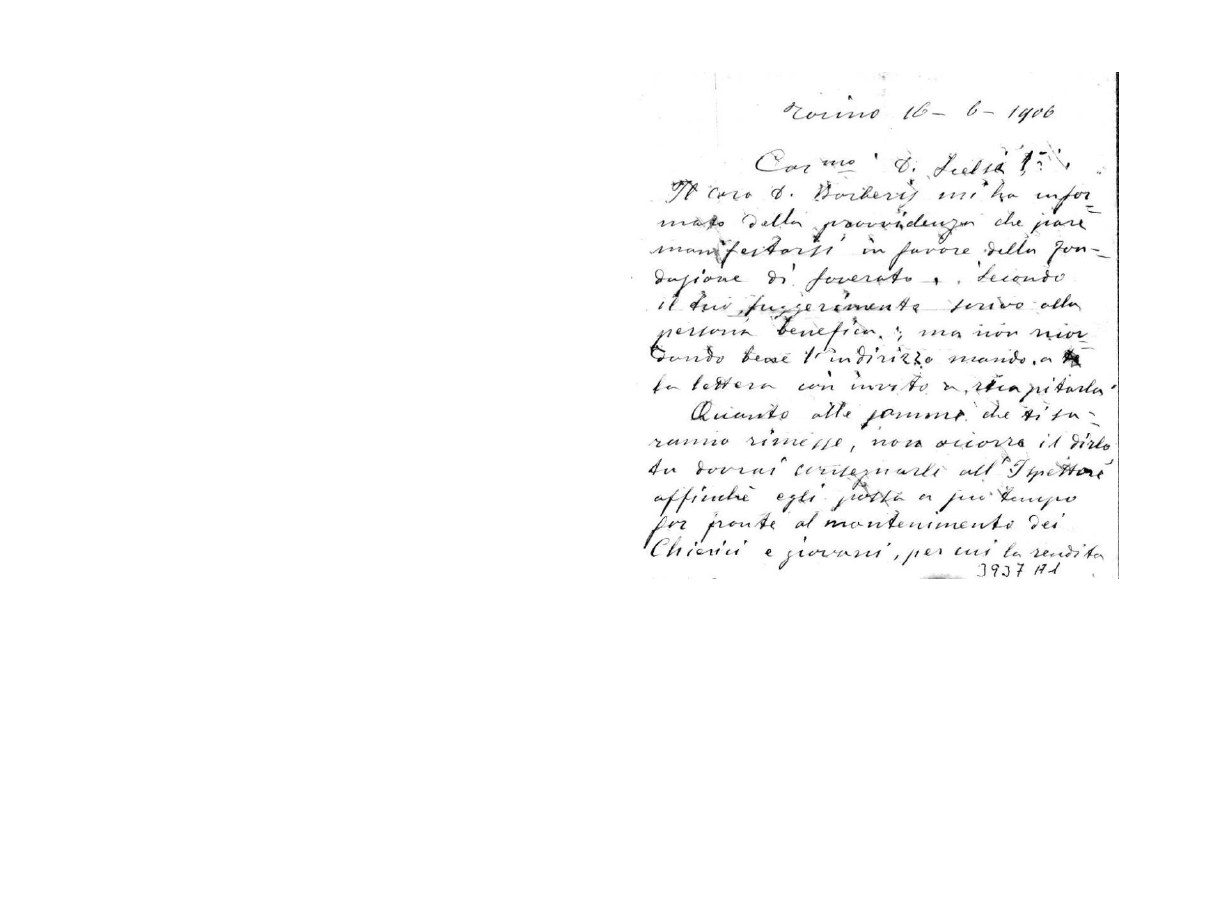 Torino 16 - 6 - 1906
Car mo D.
Il caro D. Barberis mi ha infor=
mato della provvidenza che pare
manifestarsi in favore della fon=
dazione di Soverato. Secondo
il tuo suggerimento scrivo alla
persona benefica; ma non ricor=
dando bene l'indirizzo mando a te
la lettera con invito a ricapitarla
Quanto alle somme che ti sa-
ranno rimesse, non occorre il dirlo
tu dovrai consegnarle all'Ispettore
affinchè egli possa a suo tempo
far fronte al mantenimento dei
Chierici e giovani, per cui la rendita
3937 A1